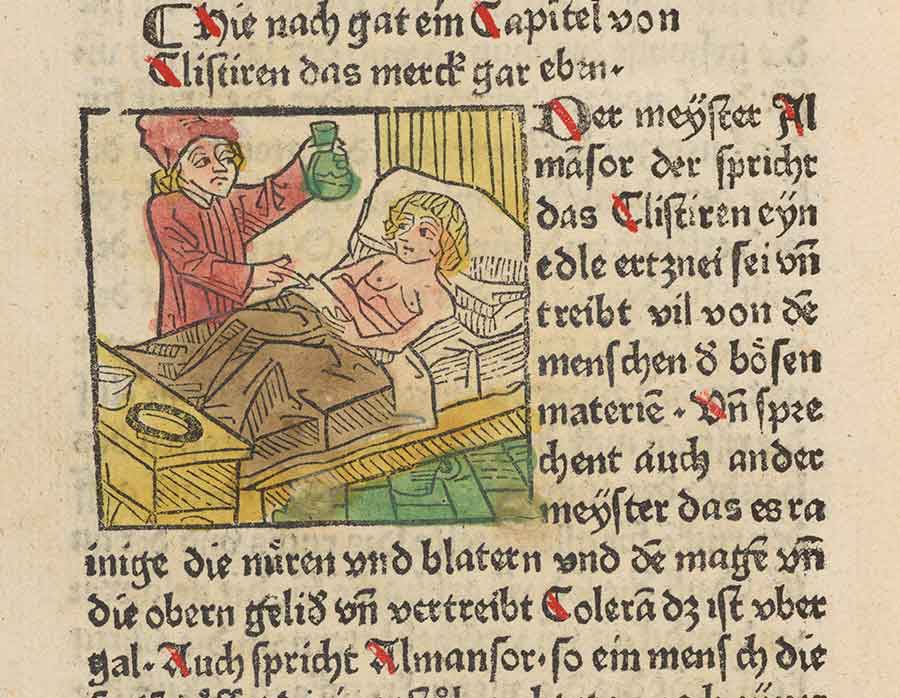 Hie nach gat ein Capitel von
Clistiren das merck gar eben.
Der meÿster Al
māsor der spricht
das Clistiren eÿn
edle ertznei sei vn̄
treibt vil von dē
menschen ď bŏsen
materiē . Vn̄ spre
chent auch ander
meÿster das es ra
inige die nüren vnd blatern vnd dē magē vn̄
die obern geliď vn̄ vertreibt Colerā dz ist vber
gal. Auch spricht Almansor. so ein mensch die